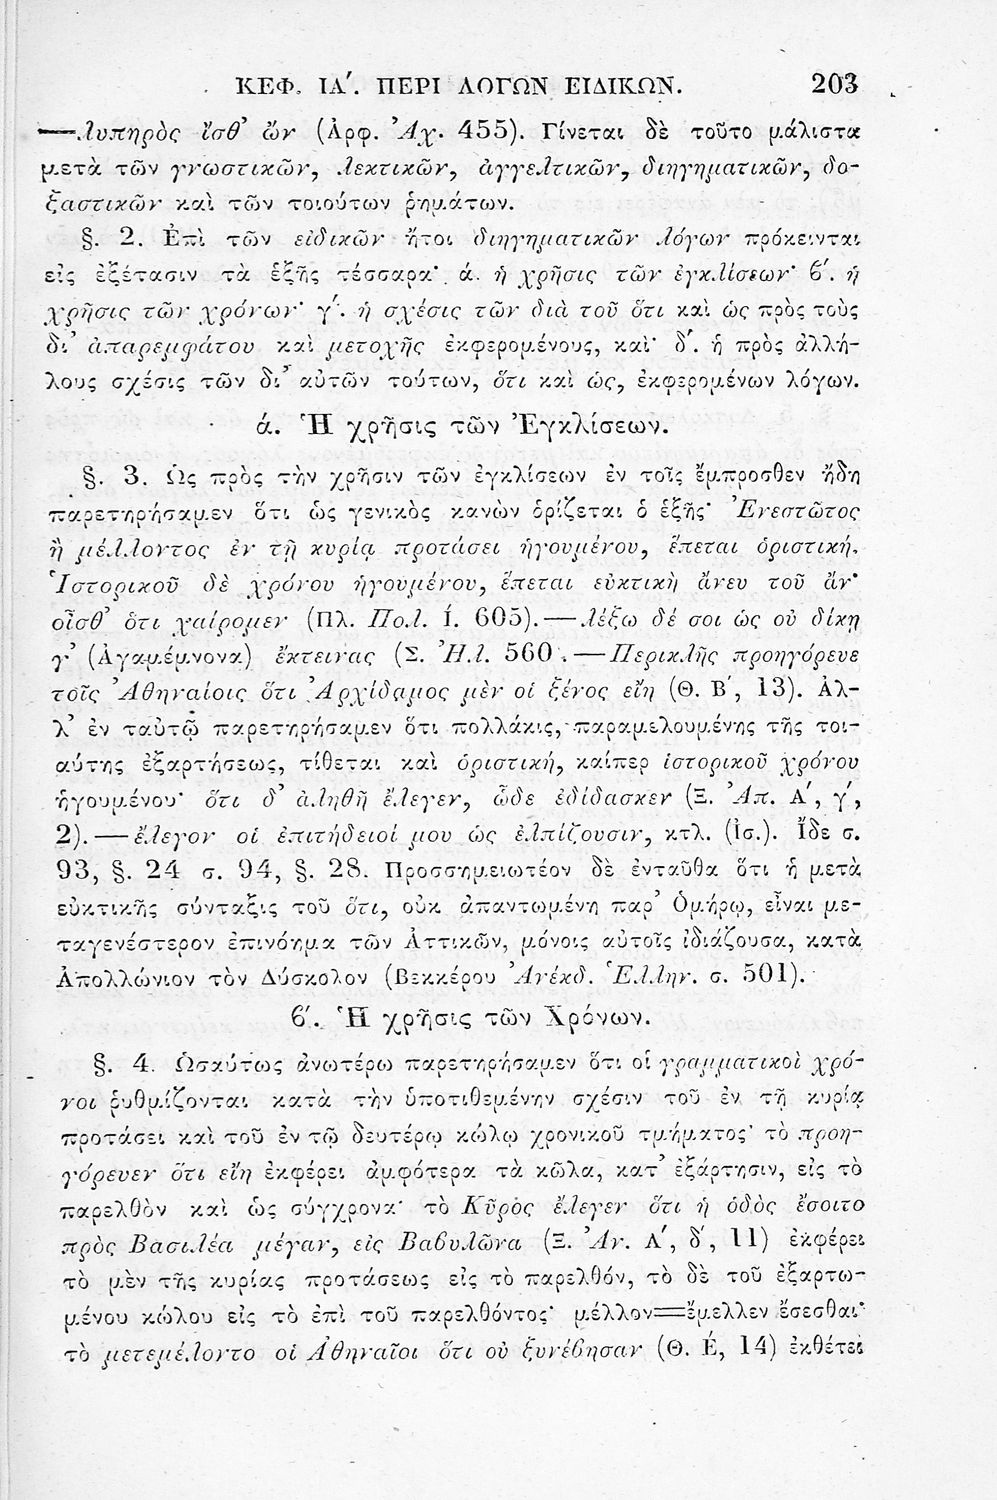 ΚΕΦ. ΙΑ′. ΠΕΡΙ ΛΟΓΩΝ ΕΙΔΙΚΩΝ. 203
—λυπηρὸς ἴσθ' ὤν (Ἀρφ. Ἀχ. 455). Γίνεται δὲ τοῦτο μάλιστα
μετὰ τῶν γνωστικῶν, λεκτικῶν, ἀγγελτικῶν, διηγηματικῶν, δο-
ξαστικῶν καὶ τῶν τοιούτων ῥημάτων.
§. 2. Ἐπὶ τῶν εἰδικῶν ἤτοι διηγηματικῶν λόγων πρόκεινται
εἰς ἐξέτασιν τὰ ἑξῆς τέσσαρα· ά. ἡ χρῆσις τῶν ἐγκλίσεων· ϐ′. ἡ
χρῆσις τῶν χρόνων· γ′. ἡ σχέσις τῶν διὰ τοῦ ὅτι καὶ ὡς πρὸς τοὺς
δι' ἀπαρεμφάτου καὶ μετοχῆς ἐκφερομένους, καὶ· δ′. ἡ πρὸς ἀλλή-
λους σχέσις τῶν δι' αὐτῶν τούτων, ὅτι καὶ ὡς, ἐκφερομένων λόγων.
ά. Ἡ χρῆσις τῶν Ἐγκλίσεων.
§. 3. Ὡς πρὸς τὴν χρῆσιν τῶν ἐγκλίσεων ἐν τοῖς ἔμπροσθεν ἤδη
παρετηρήσαμεν ὅτι ὡς γενικὸς κανὼν ὁρίζεται ὁ ἑξῆς· Ἐνεστῶτος
ἢ μέλλοντος ἐν τῇ κυρίᾳ προτάσει ἡγουμένου, ἕπεται ὁριστική.
Ἱστορικοῦ δὲ χρόνου ἡγουμένου, ἕπεται εὐκτικὴ ἄνευ τοῦ ἄν·
οἶσθ' ὅτι χαίρομεν (Πλ. Πολ. Ί. 605).—λέξω δέ σοι ὡς οὐ δίκῃ
γ' (Ἀγαμέμνονα) ἔκτεινας (Σ. Ἠλ. 560).—Περικλῆς προηγόρευε
τοῖς Ἀθηναίοις ὅτι Ἀρχίδαμος μὲν οἱ ξένος εἴη (Θ. Β′, 13). Ἀλ-
λ' ἐν ταὐτῷ παρετηρήσαμεν ὅτι πολλάκις, παραμελουμένης τῆς τοι-
αύτης ἐξαρτήσεως, τίθεται καὶ ὁριστική, καίπερ ἱστορικοῦ χρόνου
ἡγουμένου· ὅτι δ' ἀληθῆ ἔλεγεν, ὧδε ἐδίδασκεν (Ξ. Ἀπ. Α′, γ′,
2).—ἔλεγον οἱ ἐπιτήδειοί μου ὡς ἐλπίζουσιν, κτλ. (Ἰσ.). Ἴδε σ.
93, §. 24 σ. 94, §. 28. Προσσημειωτέον δὲ ἐνταῦθα ὅτι ἡ μετὰ
εὐκτικῆς σύνταξις τοῦ ὅτι, οὐκ ἀπαντωμένη παρ' Ὁμήρῳ, εἶναι με-
ταγενέστερον ἐπινόημα τῶν Ἀττικῶν, μόνοις αὐτοῖς ἰδιάζουσα, κατὰ
Ἀπολλώνιον τὸν Δύσκολον (Βεκκέρου Ἀνέκδ. Ἑλλην. σ. 501).
ϐ′. Ἡ χρῆσις τῶν Χρόνων.
§. 4. Ὡσαύτως ἀνωτέρω παρετηρήσαμεν ὅτι οἱ γραμματικοὶ χρό-
νοι ῥυθμίζονται κατὰ τὴν ὑποτιθεμένην σχέσιν τοῦ ἐν τῇ κυρίᾳ
προτάσει καὶ τοῦ ἐν τῷ δευτέρῳ κώλῳ χρονικοῦ τμήματος· τὸ προη-
γόρευεν ὅτι εἴη ἐκφέρει ἀμφότερα τὰ κῶλα, κατ' ἐξάρτησιν, εἰς τὸ
παρελθὸν καὶ ὡς σύγχρονα· τὸ Κῦρος ἔλεγεν ὅτι ἡ ὁδὸς ἔσοιτο
πρὸς Βασιλέα μέγαν, εἰς Βαϐυλῶνα (Ξ. Ἀν. Α′, δ′, 11) ἐκφέρει
τὸ μὲν τῆς κυρίας προτάσεως εἰς τὸ παρελθόν, τὸ δὲ τοῦ ἐξαρτω-
μένου κώλου εἰς τὸ ἐπὶ τοῦ παρελθόντος· μέλλον=ἔμελλεν ἔσεσθαι·
τὸ μετεμέλοντο οἱ Ἀθηναῖοι ὅτι οὐ ξυνέϐησαν (Θ. Έ, 14) ἐκθέτει